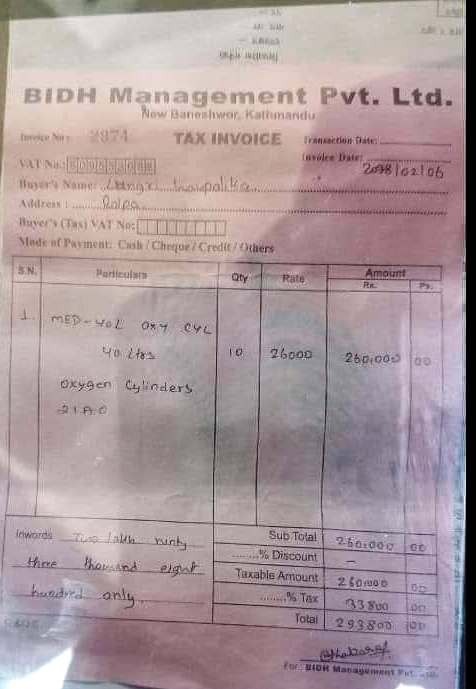 BIDH Management Pvt. Ltd.
New Baneshwor, Kathmandu
Invoice No: 2874 TAX INVOICE Transaction Date:
Invoice Date: 2078/02/06
VAT No.:
Buyer's Name:
Address : Rolpa
Buyer's (Tax) VAT No:
Mode of Payment: Cash / Cheque / Credit / Others
S.N. Particulars Qty Rate Amount
Rs. Ps.
1. MED-40L OXY CYL
40 Ltrs 10 26000 260,000 00
Oxygen Cylinders
Sub Total 260,000 00
Inwords Two lakh ninty
........% Discount -
three thousand eight Taxable Amount 260,000 00
........% Tax 33800 00
hundred only. Total 293800 00
For : BIDH Management Pvt. Ltd.